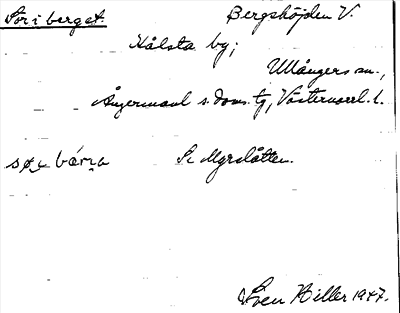 Sör i berget. Bergshöjden V.
Hålsta by;
Ullångers sn.,
Ångermanl s. doms. tg, Västernorrl. l.
Se Myrslåtten.
Sven Hiller 1947.